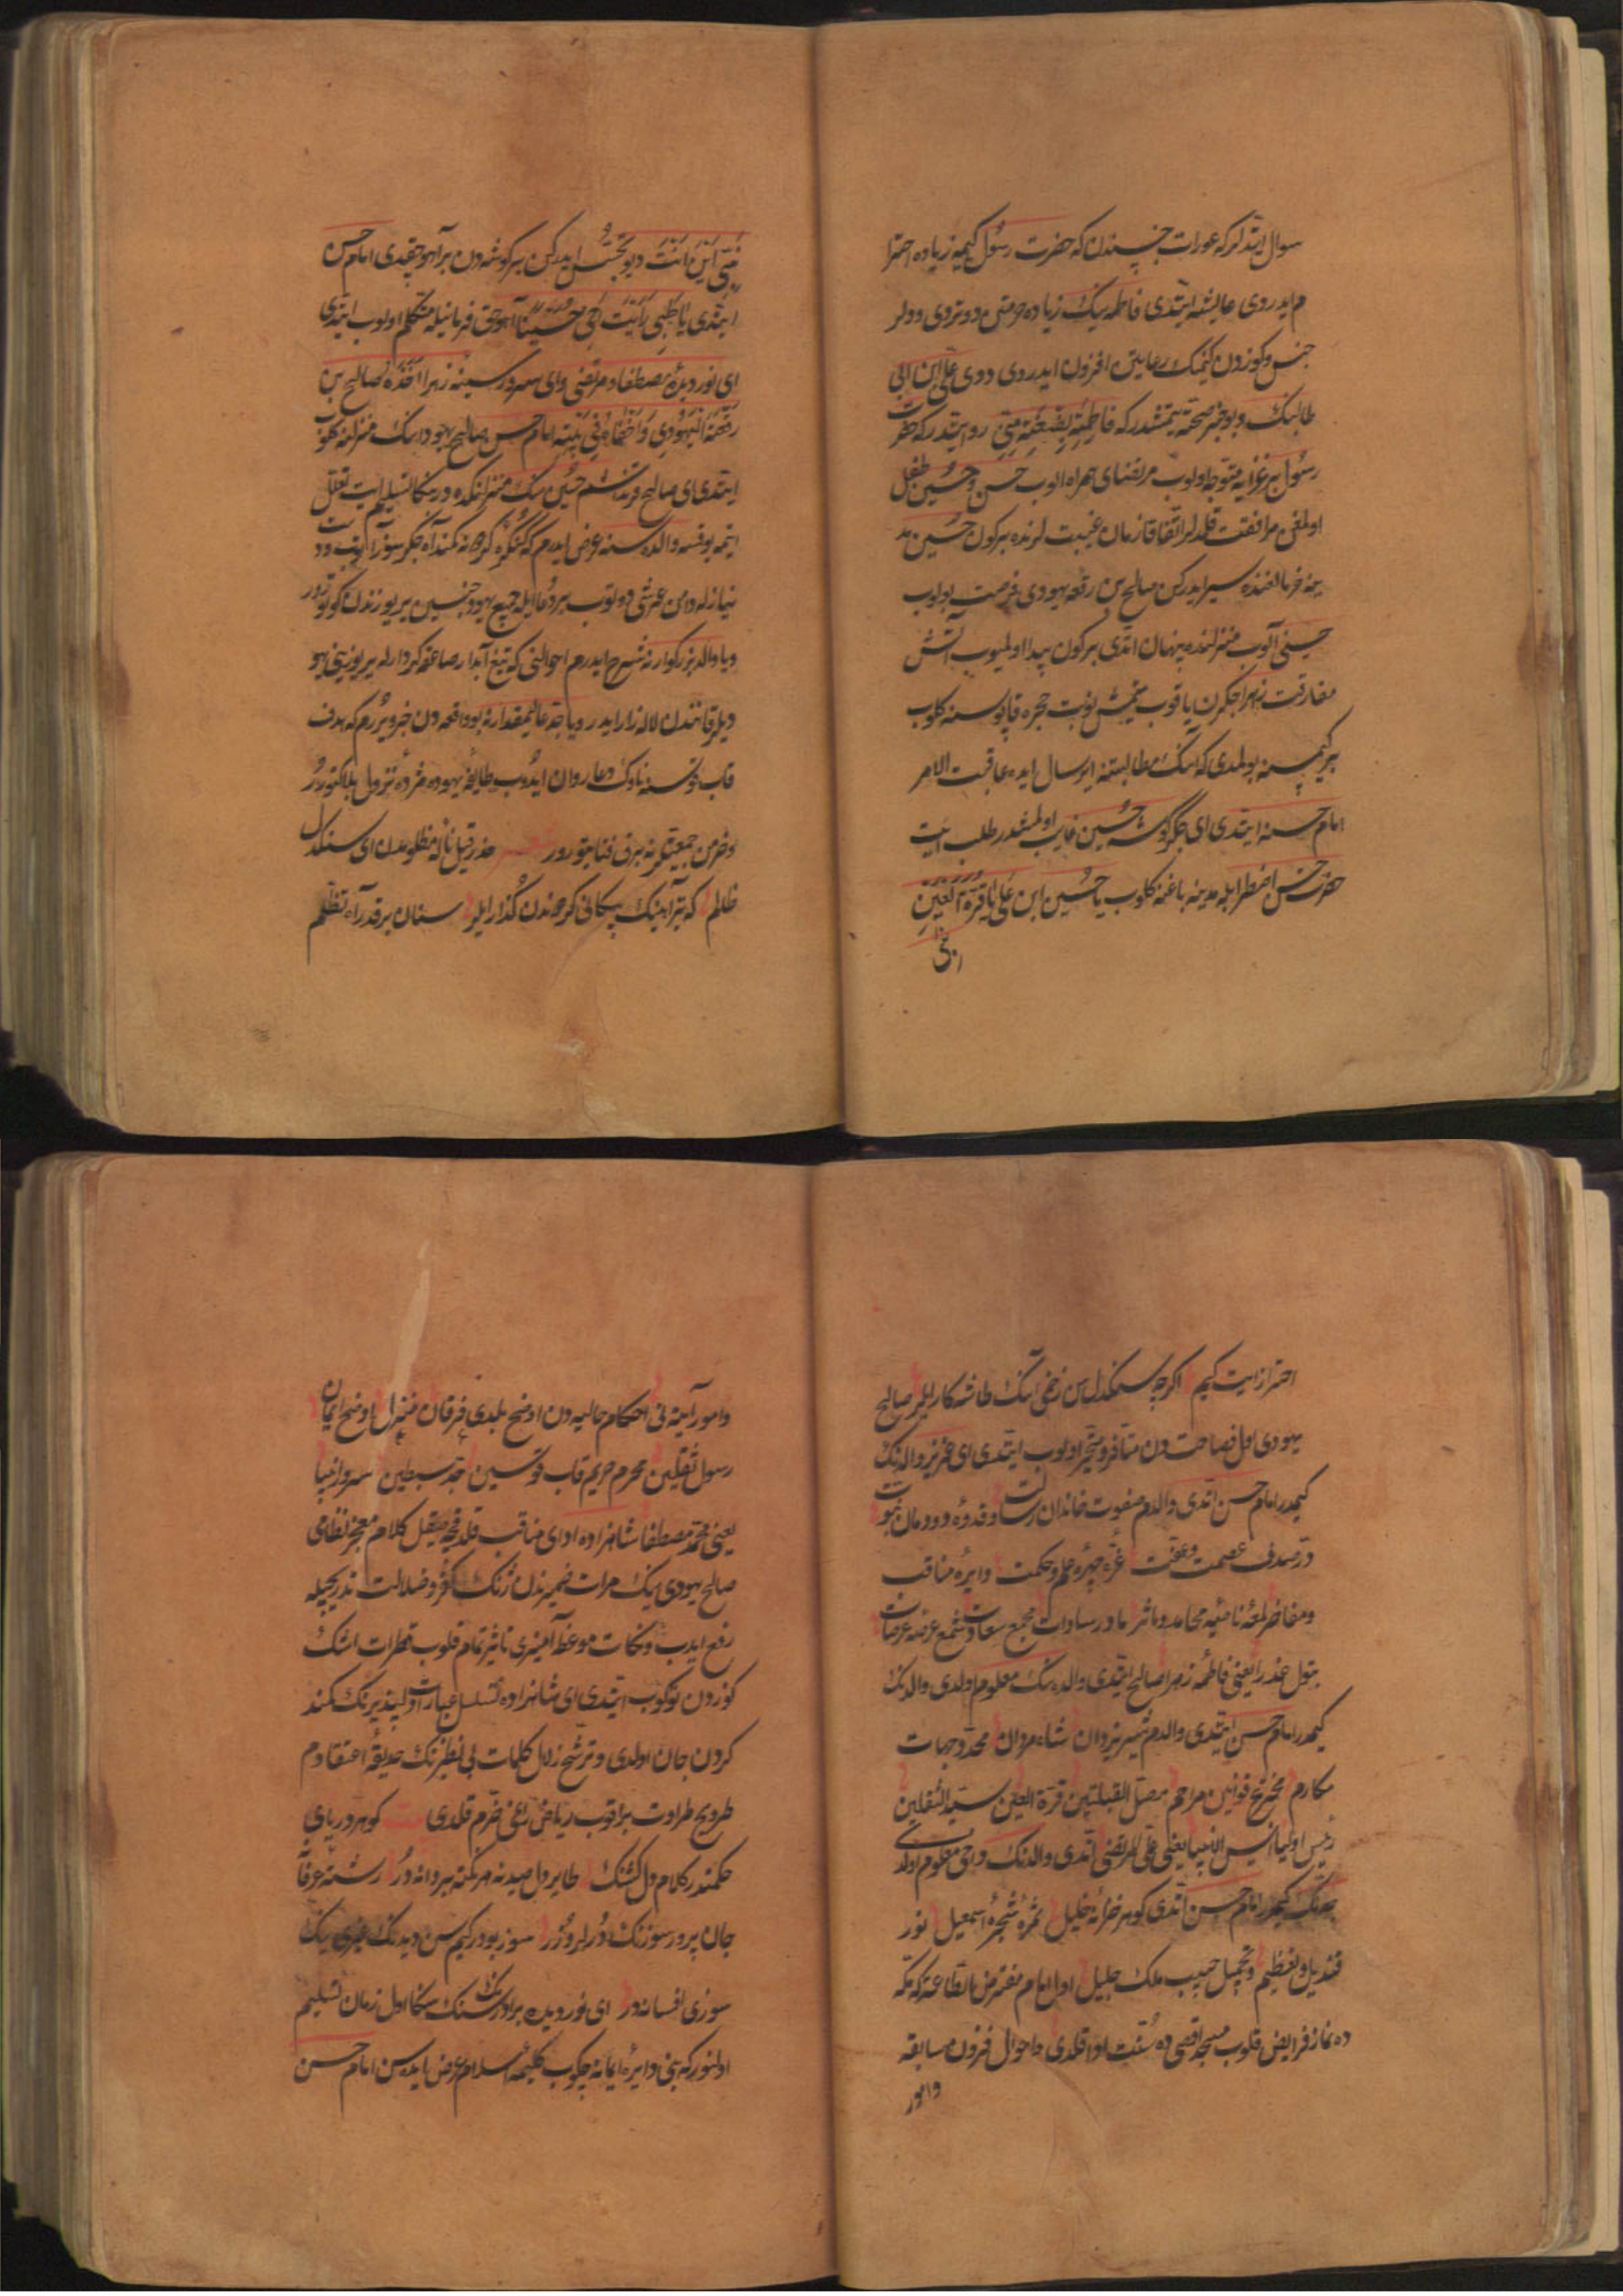 سوال ایتدیلر که عورات جنسندن که حضرت رسول کیمیه زیاده احترا
م ایدردی عایشه ایتدی فاطمه نیک زیاده حرمتین دوتردی ودولر
جنس ذکوردن کیمیک رعایتن افزون ایدردی دودی علی ابن ابی
طالبنک وبو خبر صحته یتمشدر که فاطمة بضعة منی روایتدر که حضرت
رسول بر غزایه متوجه اولوب مرتضای همراه الوب حسن و حسین طفل
اولمغن مرافقت قلمدیلر اتفاقا زمان غیبت لرنده بر کون حسین مد
ینه خرمالغنده سیر ایدرکن صالح بن رقعه یهودی فرصت بولوب
حسینی آلوب منزلنده پنهان اتدی بر کون پیدا اولمیوب آتش
مفارقت زهرا جکرن یاقوب یتمیش نوبت حجره قاپوسنه کلوب
بر کیمسنه بولمدی که انک مطالبتنه ارسال ایده عاقبت الامر
امام حسنه ایتدی ای جکرکوشه حسین غایب اولمشدر طلب ایت
حضرت حسن اضطرابله مدینه باغنه کلوب یا حسین ابن علی یا قرة العین
النبی این انت دیو تجسس ایدرکن بر کوشه دن بر آهو چقدی امام حسن
ایتدی یا ظبی رایت اخی حسینا آهو حق فرمانیله متکلم اولوب ایتدی
ای نور دیدۀ مصطفا و مرتضی وای سرور سینه زهرا اخذه صالح بن
رقعة الیهودی واخفاه فی بیته امام حسن صالح یهودانک منزلنه کلوب
ایتدی ای صالح قرنداشم حسین سنک منزلنکده در بنکا تسلیم ایت تعلل
ایتمه یوقسه والده سنه عرض ایدرم که کنکره کردونه کمند آه جکر سوز آتوب ودو
نیازله دامن عرشی دوتوب بر دعا ایله جمیع یهود جنسین یر یوزندن کوتورور
ویا والد بزرکوارنه شرح ایدرم احوالنی که تیغ آبدار صاعقه کردارله یر یوزینی یهو
دیلر قانندن لاله زار ایدر ویا جد عالیمقدارنه بو واقعه دن خبر ویررم که هدف
قاب قوسینه ناوک دعا روان ایدوب طایفه یهوده مژده نزول بلا کتورور
وخرمن جمعیتکزنه برق فنا یتورور حذر قیل نالۀ مظلومدن ای سنکدل
ظالم که تیر آهینک پیکانی کردوندن کذار ایلر سنان برقدر آه تظلم
احتراز ایت کیم اکرچه سنکدل سن زخمی انک طاشه کار ایلر صالح
یهودی اول فصاحتدن متاثر و متحیر اولوب ایتدی ای عزیز والدنک
کیمدر امام حسن اتدی والدم صفوت خاندان رسالت و قدوۀ دودمان نبوت
در صدف عصمت و عفت غرۀ چهرۀ علم و حکمت دایرۀ مناقب
ومفاخر لمعۀ ناصیه محامد و ماثر مادر سادات مجمع سعادت شمع عرصه عرصات
بتول عذرا یعنی فاطمۀ زهرا صالح ایتدی والده نک معلوم اولدی والدنک
کیمدر امام حسن ایتدی والدم شیر یزدان شاه مردان محدد جهات
مکارم مخترع قوانین مراحم مصلی القبلتین قرة العین سید الثقلین
رئیس اولیا انیس الانبیا یعنی علی المرتضی اتدی والدنک دخی معلوم اولدی
جدنک کیمدر امام حسن اتدی کوهر خزانۀ خلیل ثمرۀ شجرۀ اسمعیل نور
قندیل تعظیم و تجمیل حبیب ملک جلیل اول امام مفترض الطاعه که مکه
ده نماز فرایض قلوب مسجد اقصی ده سنت ادا قلدی و احوال قرون سابقه
وامور
وامور آتیه نی احکام حالیه دن اوضح بلدی فرقان منزل اوضح ایمان
رسول ثقلین محرم حریم قاب قوسین جد سبطین سرور انبیا
یعنی محمد مصطفا شاهزاده ادای مناقب قلدقجه صیقل کلام معجز نظامی
صالح یهودی نیک مرات ضمیرندن ژنک کفر وضلالت تدریجیله
رفع ایدب ونکات موعظه آمیزی تاثیر تمام قلوب قطرات اشک
کوزدن توکوب ایتدی ای شاهزاده تسلسل عبارات دلپذیرنک کمند
کردن جان اولدی و ترشح زلال کلمات بی نظیرنک حدیقۀ اعتقادم
طرویح طراوت براقوب ریاض راغی خرم قلدی کوهر دریای
حکمتدر کلام دل کشنک طایر دل صیدینه هر نکته بر دانه دُر رشته عرفا
جان پرور سوزنک دُرلر دُزر سوز بودر کیم سن دیدنک غیری نک
سوزی افسانه در ای نور دیده برادرنک سنک بنکا اول زمان تسلیم
اولنور که بنی دایرۀ ایمانه چکوب کلیمه اسلام عرض ایده سن امام حسن